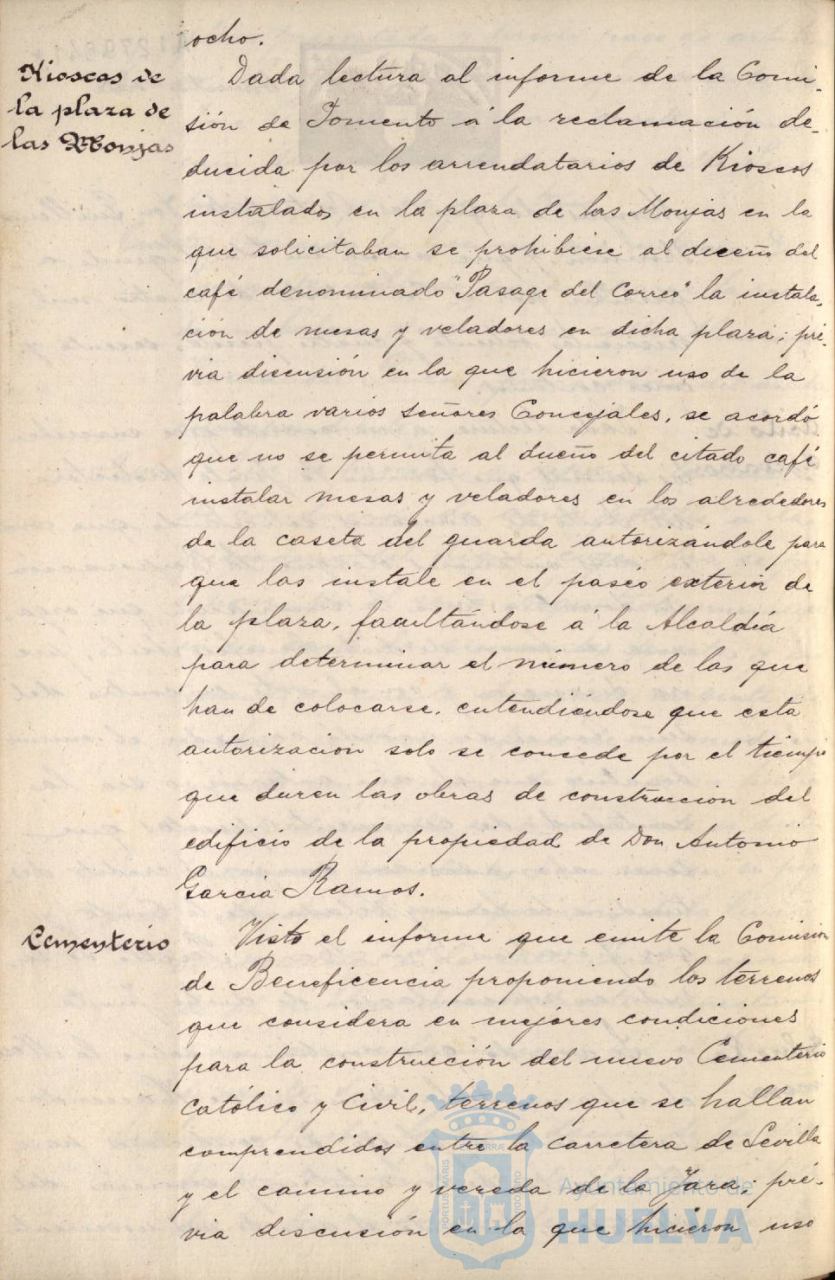 ocho.
Kioscos de
la plaza de
las Monjas
Dada lectura al informe de la Comi-
sión de Fomento á la reclamación de-
ducida por los arrendatarios de Kioscos
instalados en la plaza de las Monjas en la
que solicitaban se prohibiese al dueño del
café denominado "Pasage del Correo" la instala-
ción de mesas y veladores en dicha plaza; pré-
via discusión en la que hicieron uso de la
palabra varios señores Concejales, se acordó
que no se permita al dueño del citado café
instalar mesas y veladores en los alrededores
de la caseta del guarda autorizándole para
que las instale en el paseo exterior de
la plaza, facultándose á la Alcaldía
para determinar el número de las que
han de colocarse, entendiéndose que esta
autorización solo se concede por el tiempo
que duren las obras de construcción del
edificio de la propiedad de Don Antonio
Garcia Ramos.
Cementerio
Visto el informe que emite la Comisión
de Beneficencia proponiendo los terrenos
que considera en mejores condiciones
para la construcción del nuevo Cementerio
Católico y Civil, terrenos que se hallan
comprendidos entre la carretera de Sevilla
y el camino y vereda de la Jara, pré-
via discusión en la que hicieron uso
Ayuntamiento de
HUELVA